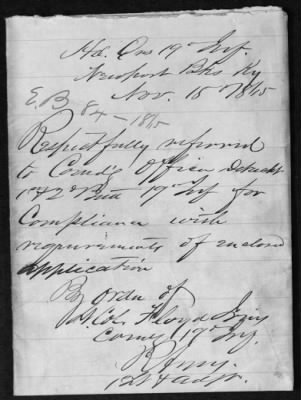 Hd. Qrs 19" Inf.
Newport Bks Ky
Nov. 15" 1865
E.B 84 - 1865
Respectfully referred
to Comdg Officer Detachmt
1" & 2" Batt 19" Inf for
Compliance with
requirements of enclosed
application
By order of
Lt Col. Floyd Jones
Comdg 19" Inf.
1 Lt & Adjt.